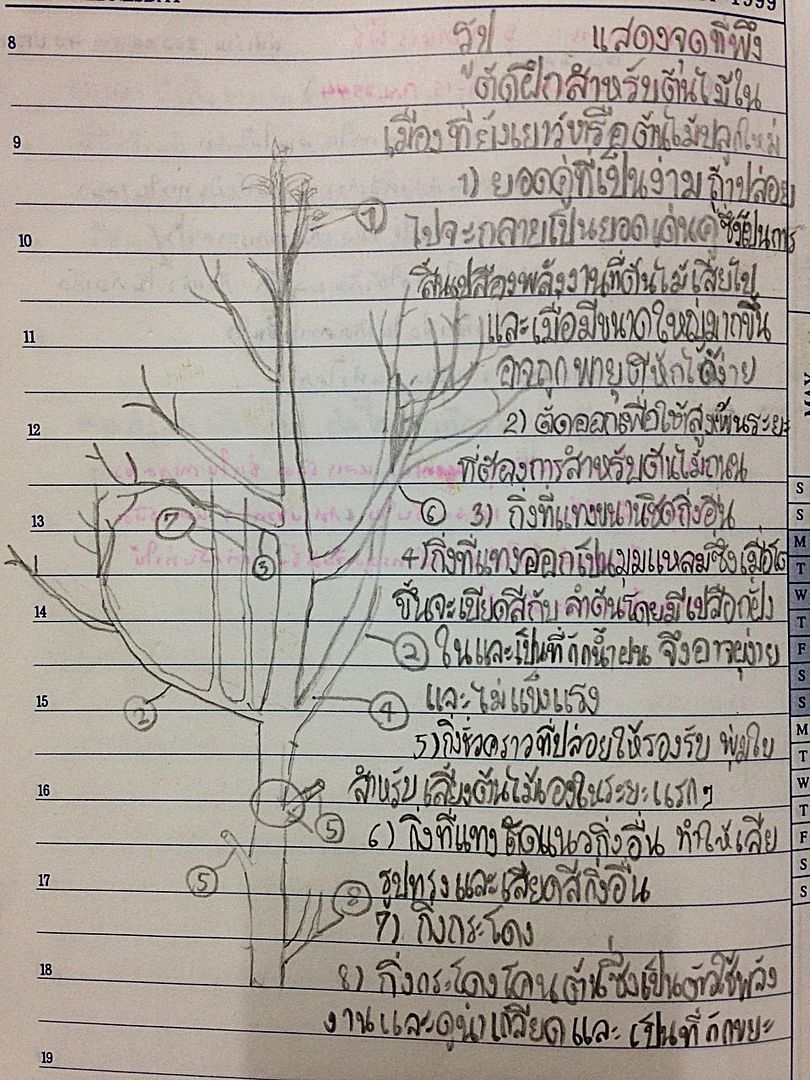 1999
8
รูป แสดงจุดที่พึง
ตัดฝึกสำหรับต้นไม้ใน
9
เมืองที่ยังเยาว์หรือต้นไม้ปลูกใหม่
1) ยอดคู่ที่เป็นง่าม ถ้าปล่อย
1
10
ไปจะกลายเป็นยอดเด่นคู่ซึ่งเป็นการ
สิ้นเปลืองพลังงานที่ต้นไม้เสียไป
11
และเมื่อมีขนาดใหญ่มากขึ้น
อาจถูกพายุตีหักได้ง่าย
12
2) ตัดออกเพื่อให้สูงพ้นระยะ
ที่ต้องการสำหรับต้นไม้ถนน
6
3) กิ่งที่แทงขนานชิดกิ่งอื่น
13
7
3
4) กิ่งที่แทงออกเป็นมุมแหลมซึ่งเมื่อโต
14
ขึ้นจะเบียดสีกับลำต้นโดยมีเปลือกฝัง
2
ในและเป็นที่กักน้ำฝน จึงอาจผุง่าย
15
2
4
และไม่แข็งแรง
5) กิ่งชั่วคราวที่ปล่อยให้รองรับ พุ่มใบ
16
สำหรับเลี้ยงต้นไม้เองในระยะแรกๆ
5
6) กิ่งที่แทงขัดแนวกิ่งอื่น ทำให้เสีย
17
5
8
รูปทรงและเสียดสีกิ่งอื่น
7) กิ่งกระโดง
18
8) กิ่งกระโดงโคนต้นซึ่งเป็นตัวใช้พลัง
งานและดูน่าเกลียดและ เป็นที่กักขยะ
19
MAY
S
S
M
T
W
T
F
S
S
M
T
W
T
F
S
S